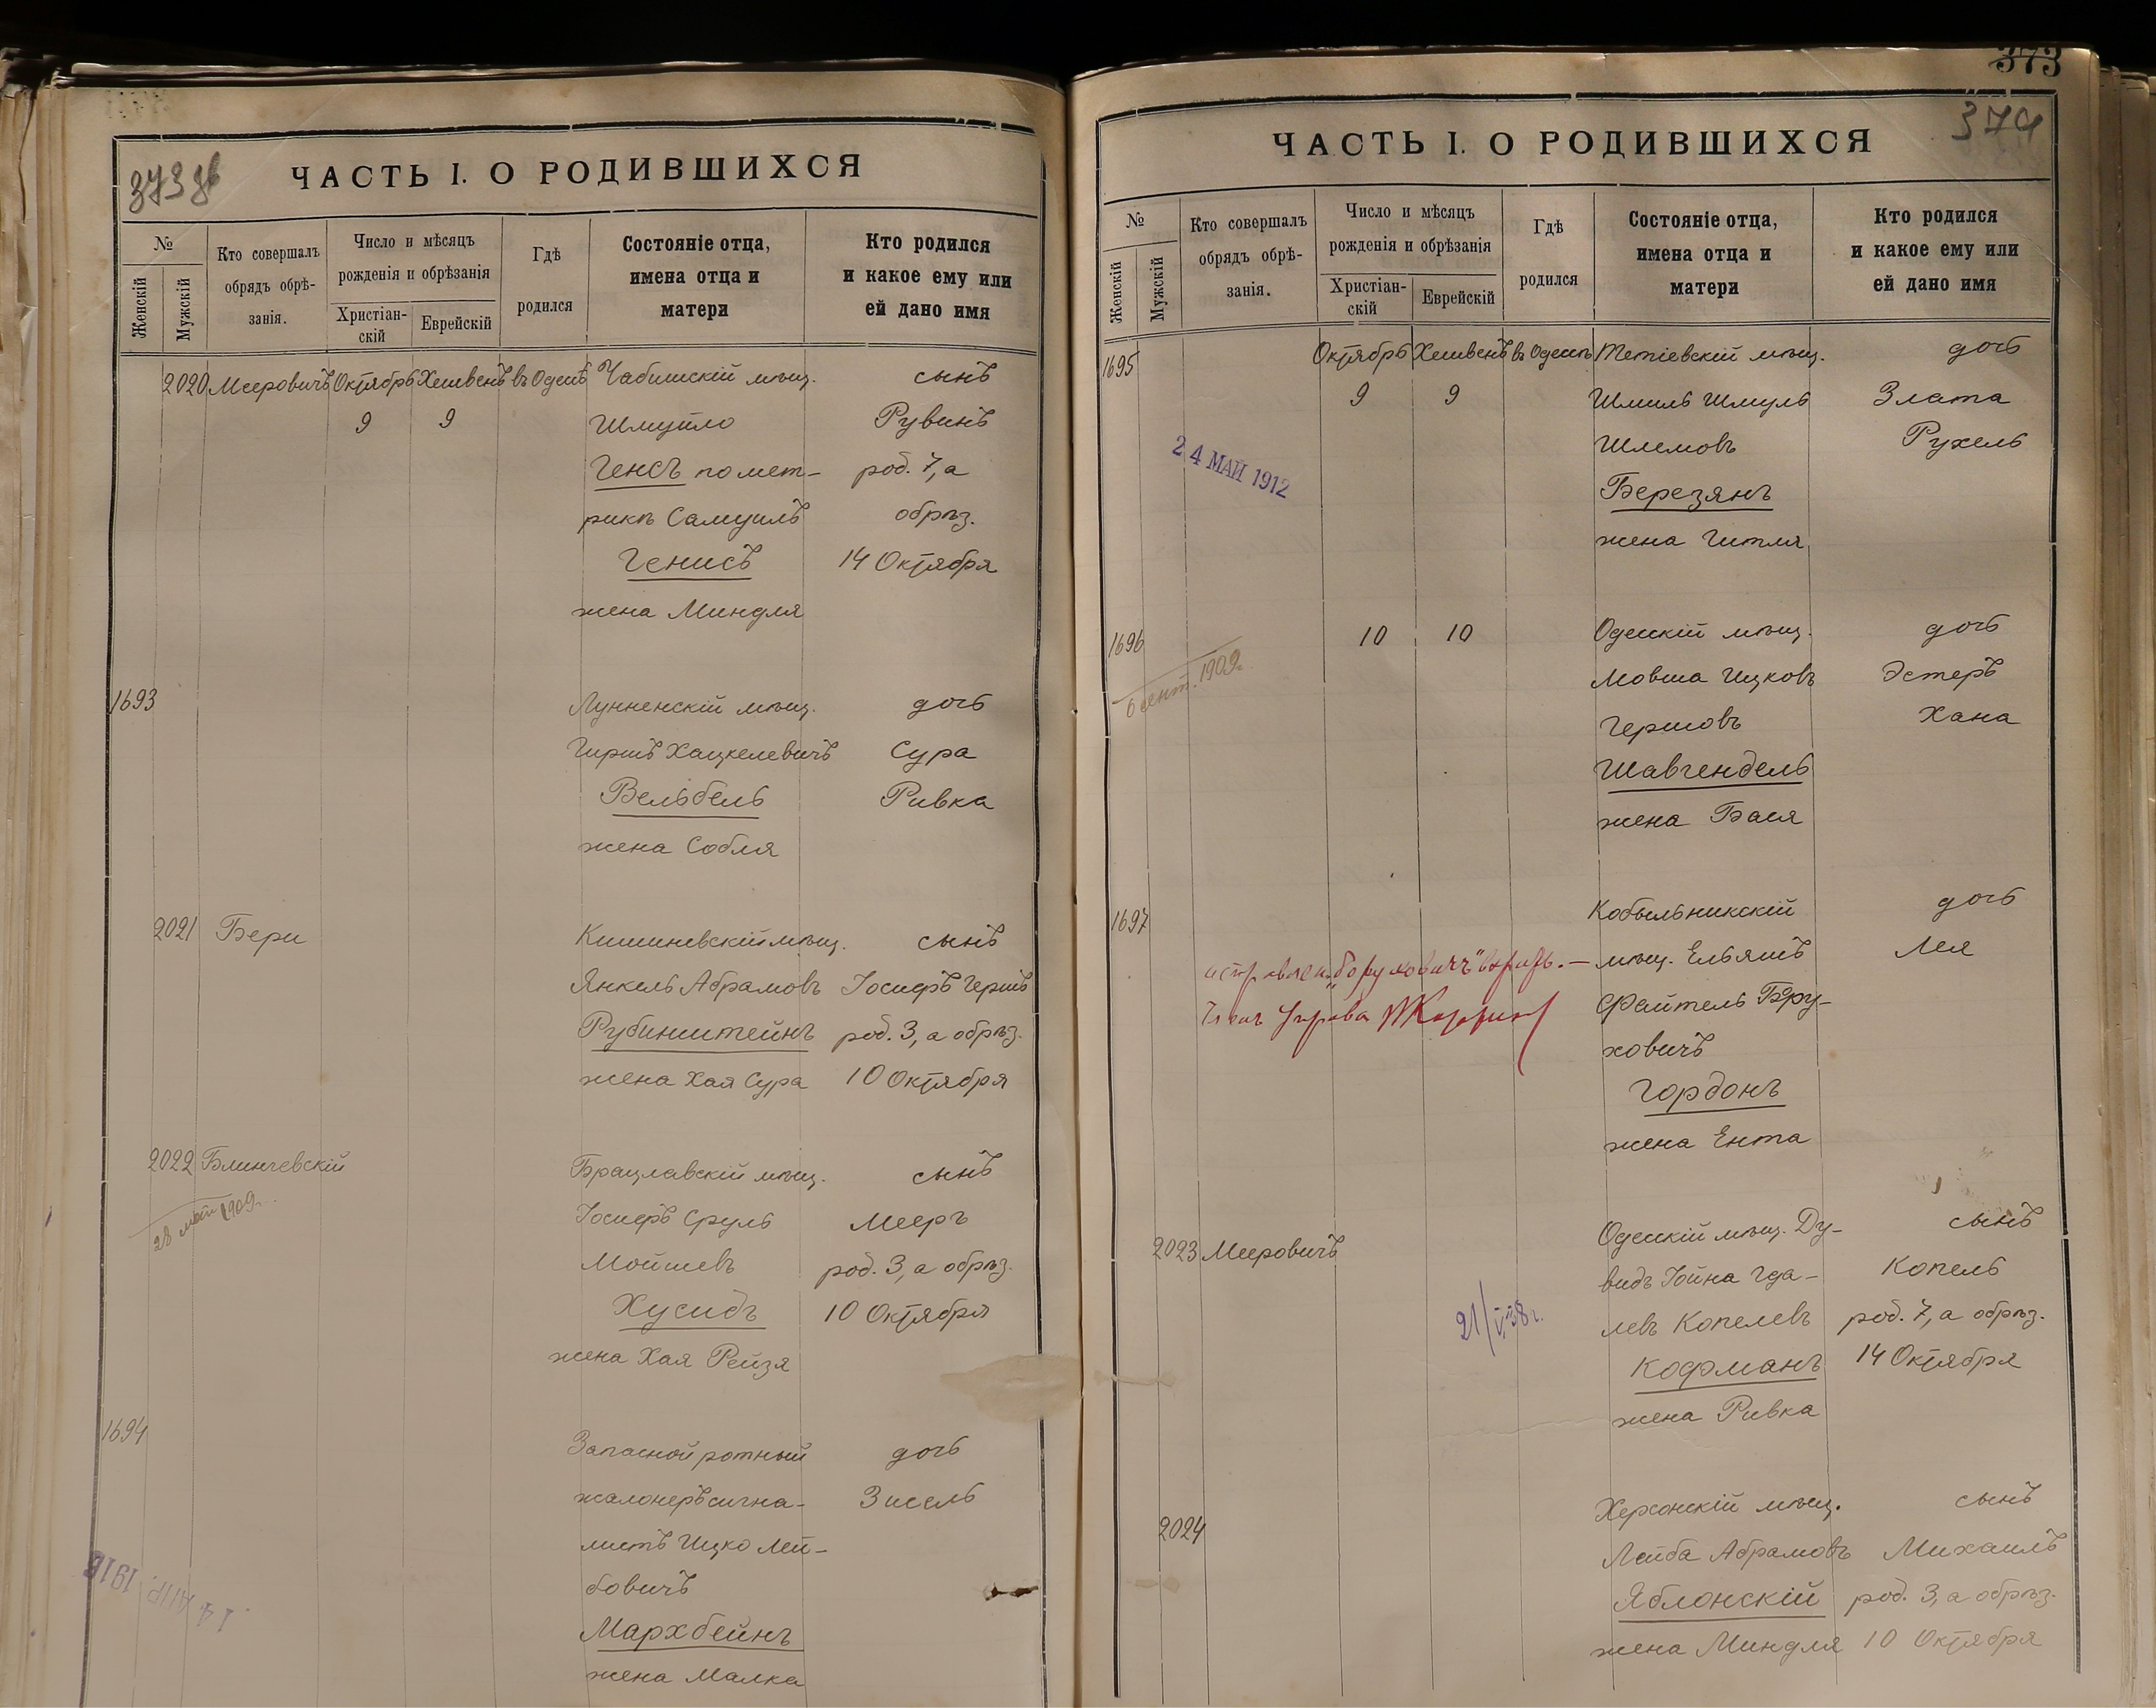 373 об
ЧАСТЬ I. О РОДИВШИХСЯ
№
Женскій
Мужскій
Кто совершалъ
обрядъ обрѣ-
занія.
Число и мѣсяцъ
рожденія и обрѣзанія
Христіан-
скій
Еврейскій
Гдѣ
родился
Состояніе отца,
имена отца и
матери
Кто родился
и какое ему или
ей дано имя
2020 Мееровичъ Октябрь Хешвенъ въ Одессѣ Чабишскій мѣщ. сынъ
9 9 Шмуйло Рувинъ
Генсъ по мет- род. 7, а
рикѣ Самуилъ обрѣз.
Генисъ 14 Октября
жена Миндля
1693 Лунненскій мѣщ. дочь
Гиршъ Хацкелевичъ Сура
Вельбель Ривка
жена Собля
2021 Бери Кишиневскій мѣщ. сынъ
Янкель Абрамовъ Іосифъ Гершъ
Рубинштейнъ род. 3, а обрѣз.
жена Хая Сура 10 Октября
2022 Блинчевскій Брацлавскій мѣщ. сынъ
28 мая 1909г. Іосифъ Сруль Мееръ
Мойшевъ род. 3, а обрѣз.
Хусидъ 10 Октября
жена Хая Рейзя
1694 Запасной ротный дочь
жалонеръ сигна- Зисель
листъ Ицко Лей-
бовичъ
14 АПР. 1916
Мархбейнъ
жена Малка
373
374
ЧАСТЬ I. О РОДИВШИХСЯ
№
Женскій
Мужскій
Кто совершалъ
обрядъ обрѣ-
занія.
Число и мѣсяцъ
рожденія и обрѣзанія
Христіан-
скій
Еврейскій
Гдѣ
родился
Состояніе отца,
имена отца и
матери
Кто родился
и какое ему или
ей дано имя
1695 Октябрь Хешвенъ въ Одессѣ Тетіевскій мѣщ. дочь
9 9 Шмиль Шмуль Злата
Шлемовъ Рухель
24 МАЙ 1912
Березянъ
жена Гитля
1696 10 10 Одесскій мѣщ. дочь
6 сент. 1909г. Мовша Ицковъ Эстеръ
Гершовъ Хана
Шавгендель
жена Бася
1697 Кобыльникскій дочь
"Боруховичъ" мѣщ. Ельяшъ Лея
Членъ Управы Файтель Бору-
ховичъ
Гордонъ
жена Ента
2023 Мееровичъ Одесскій мѣщ. Ду- сынъ
видъ Іойна Гда- Копель
21/VI 38 г. левъ Копелевъ род. 7, а обрѣз.
Кофманъ 14 Октября
жена Ривка
2024 Херсонскій мѣщ. сынъ
Лейба Абрамовъ Михаилъ
Яблонскій род. 3, а обрѣз.
жена Миндля 10 Октября